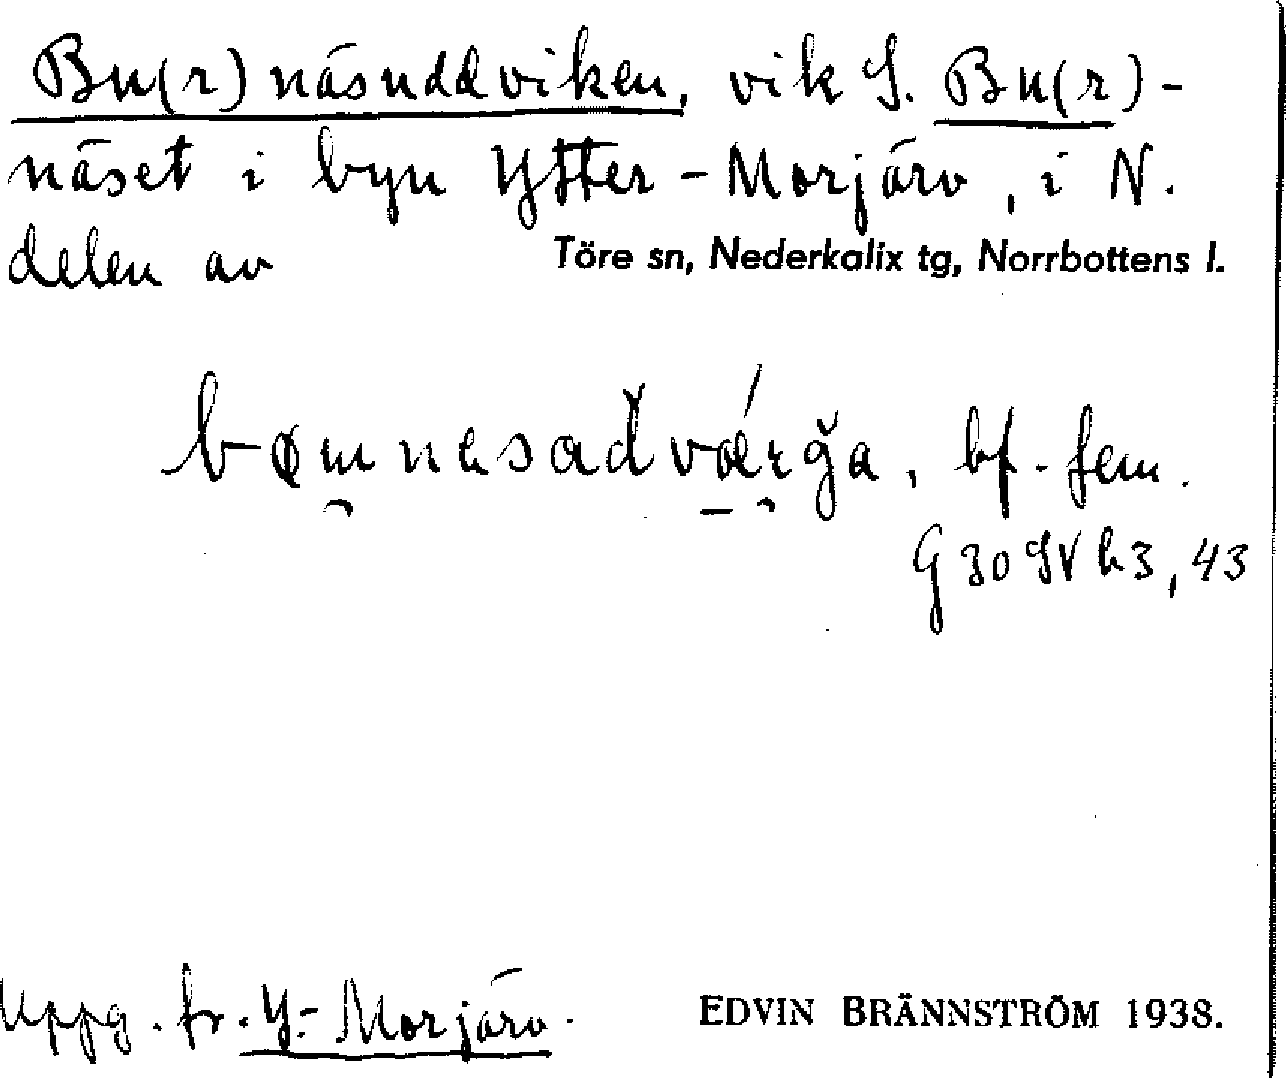 Bu(r)näsuddviken, vik S. Bu(r)-
näset i byn Ytter-Morjärv, i N.
delen av Töre sn, Nederkalix tg, Norrbottens l.
bf. fem.
G 30 SV h3, 43
Uppg. fr. Y.-Morjärv. EDVIN BRÄNNSTRÖM 1938.